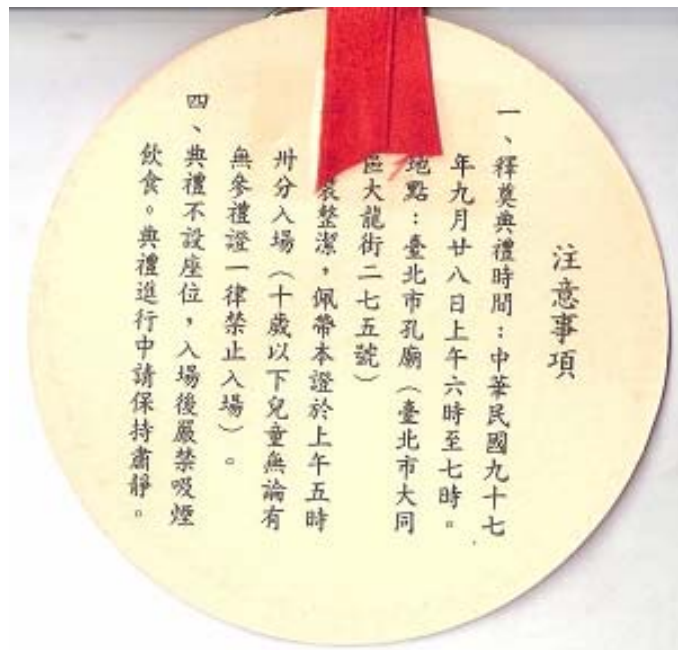 注意事項
一、釋奠典禮時間：中華民國九十七
年九月廿八日上午六時至七時。
地點：臺北市孔廟（臺北市大同
區大龍街二七五號）
整潔，佩帶本證於上午五時
卅分入場（十歲以下兒童無論有
無參禮證一律禁止入場）。
四、典禮不設座位，入場後嚴禁吸煙
飲食。典禮進行中請保持肅靜。